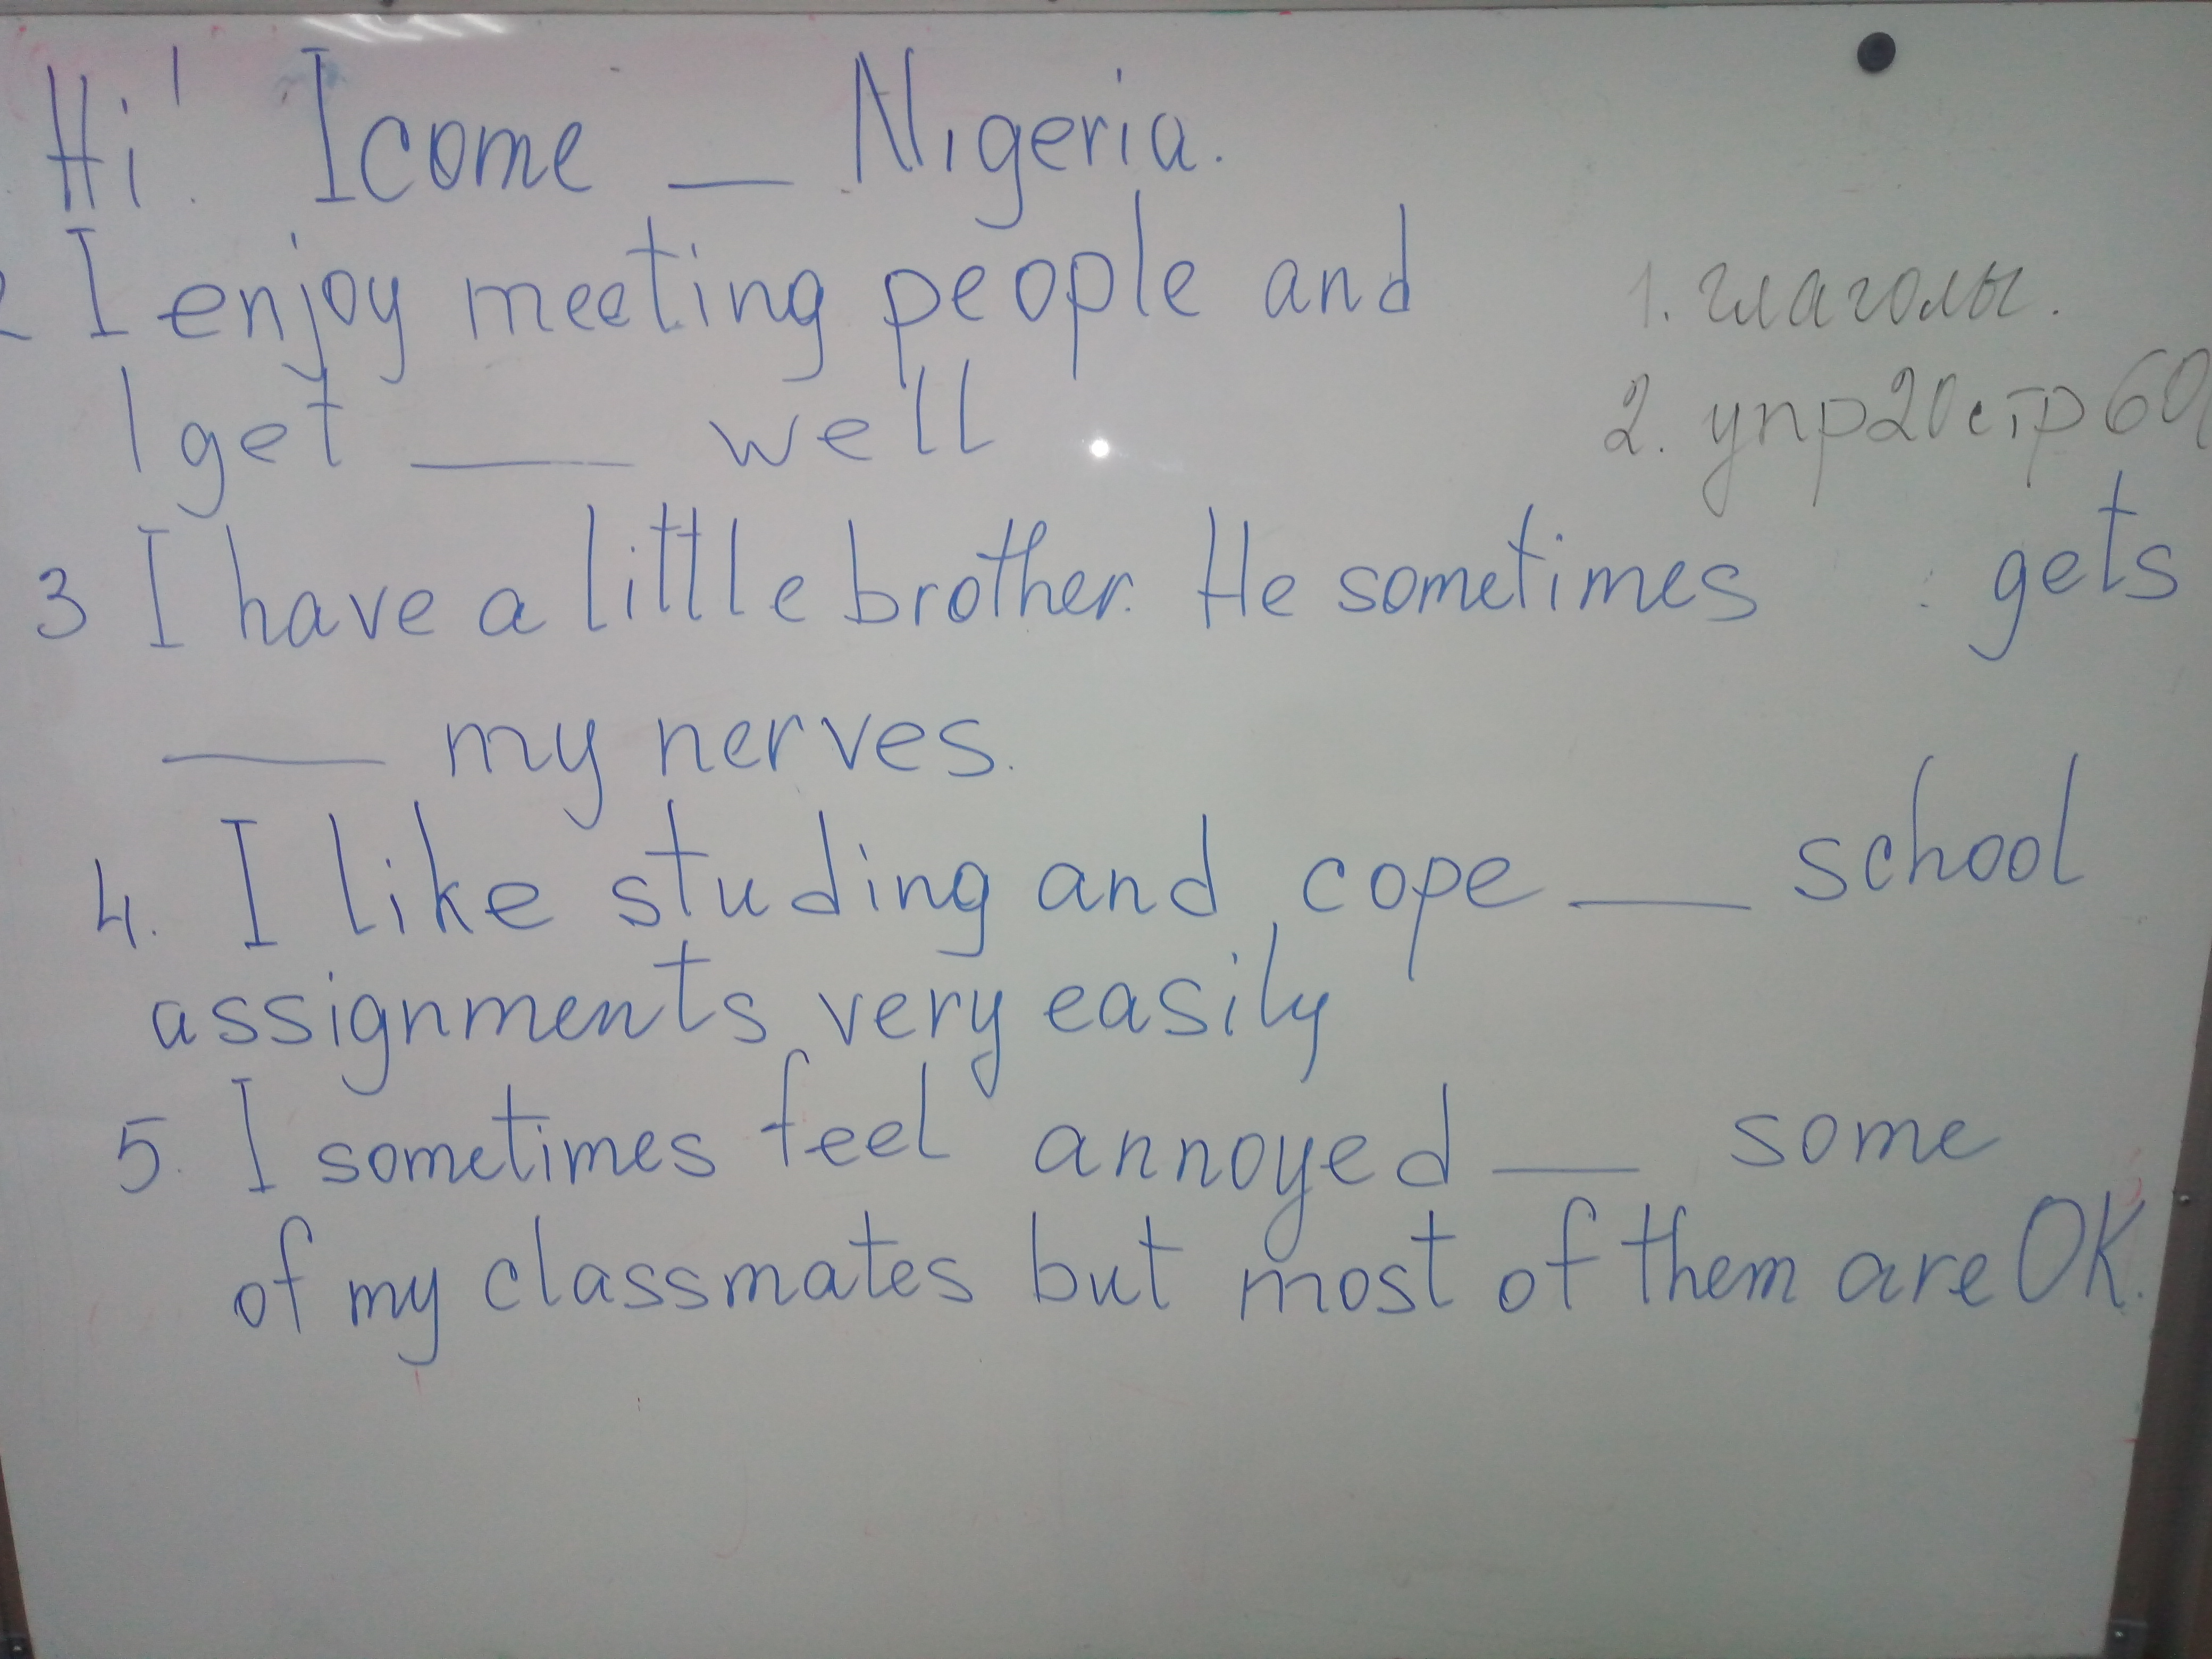 Hi! I come __ Nigeria.
2 I enjoy meeting people and
I get ____ well
1. глаголы.
2. упр 20 стр 60
3 I have a little brother. He sometimes gets
____ my nerves.
4. I like studing and cope ____ school
assignments very easily
5. I sometimes feel annoyed ___ some
of my classmates but most of them are OK.